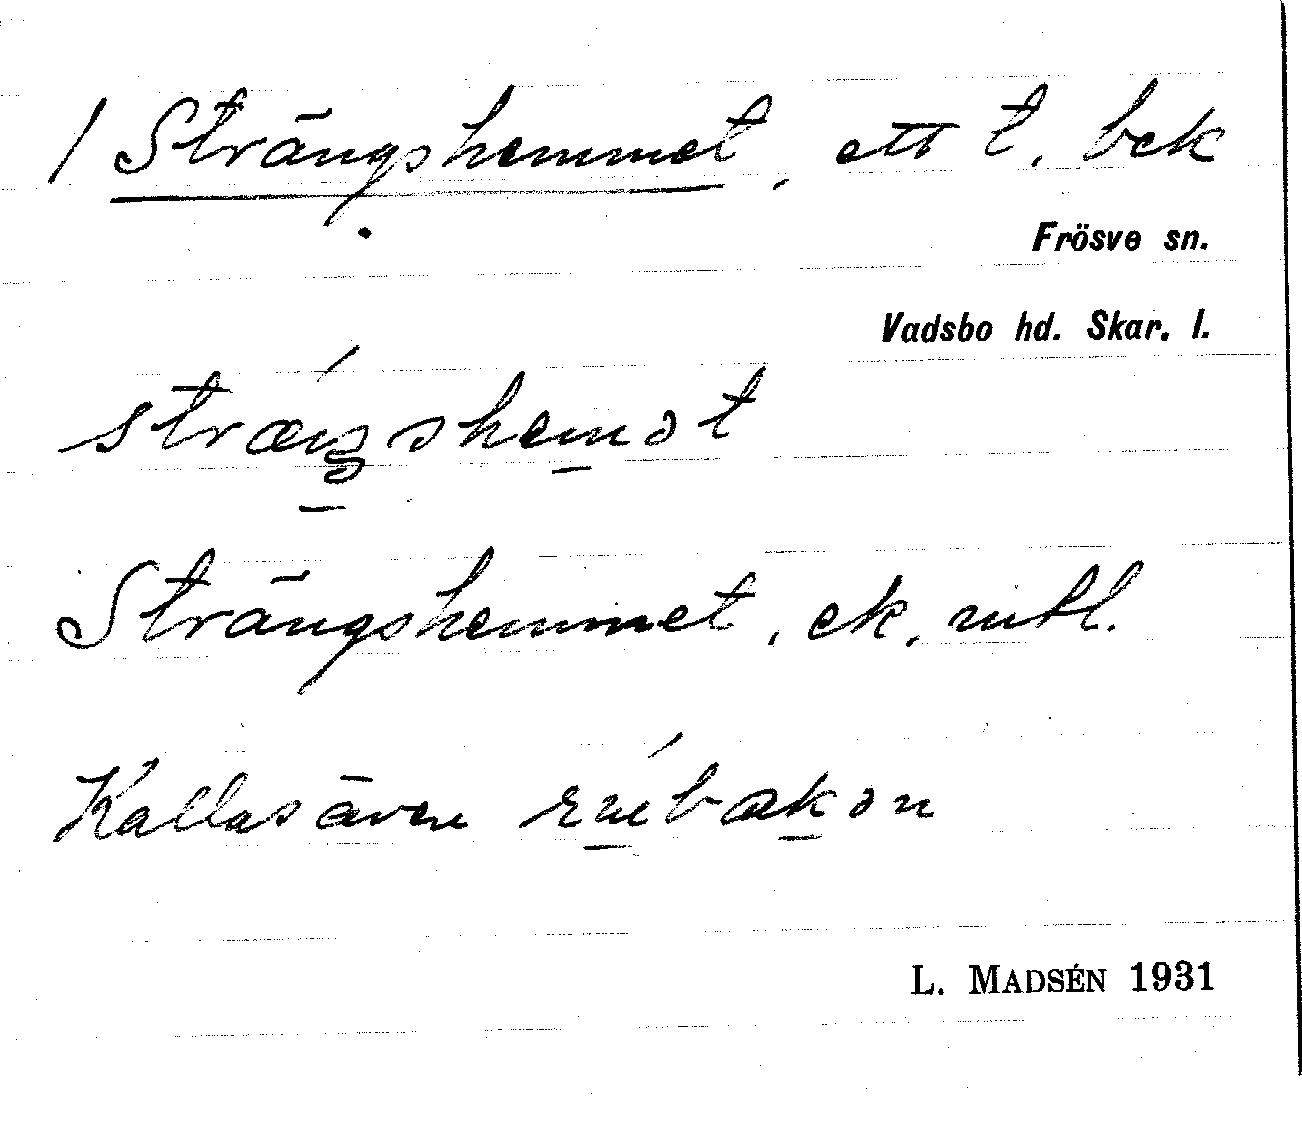 / Strängshemmet, ett t. bek
Frösve sn.
Vadsbo hd. Skar. l.
stræŋshemət
Strängshemmet, ek.
Kallas även
L. MADSÉN 1931